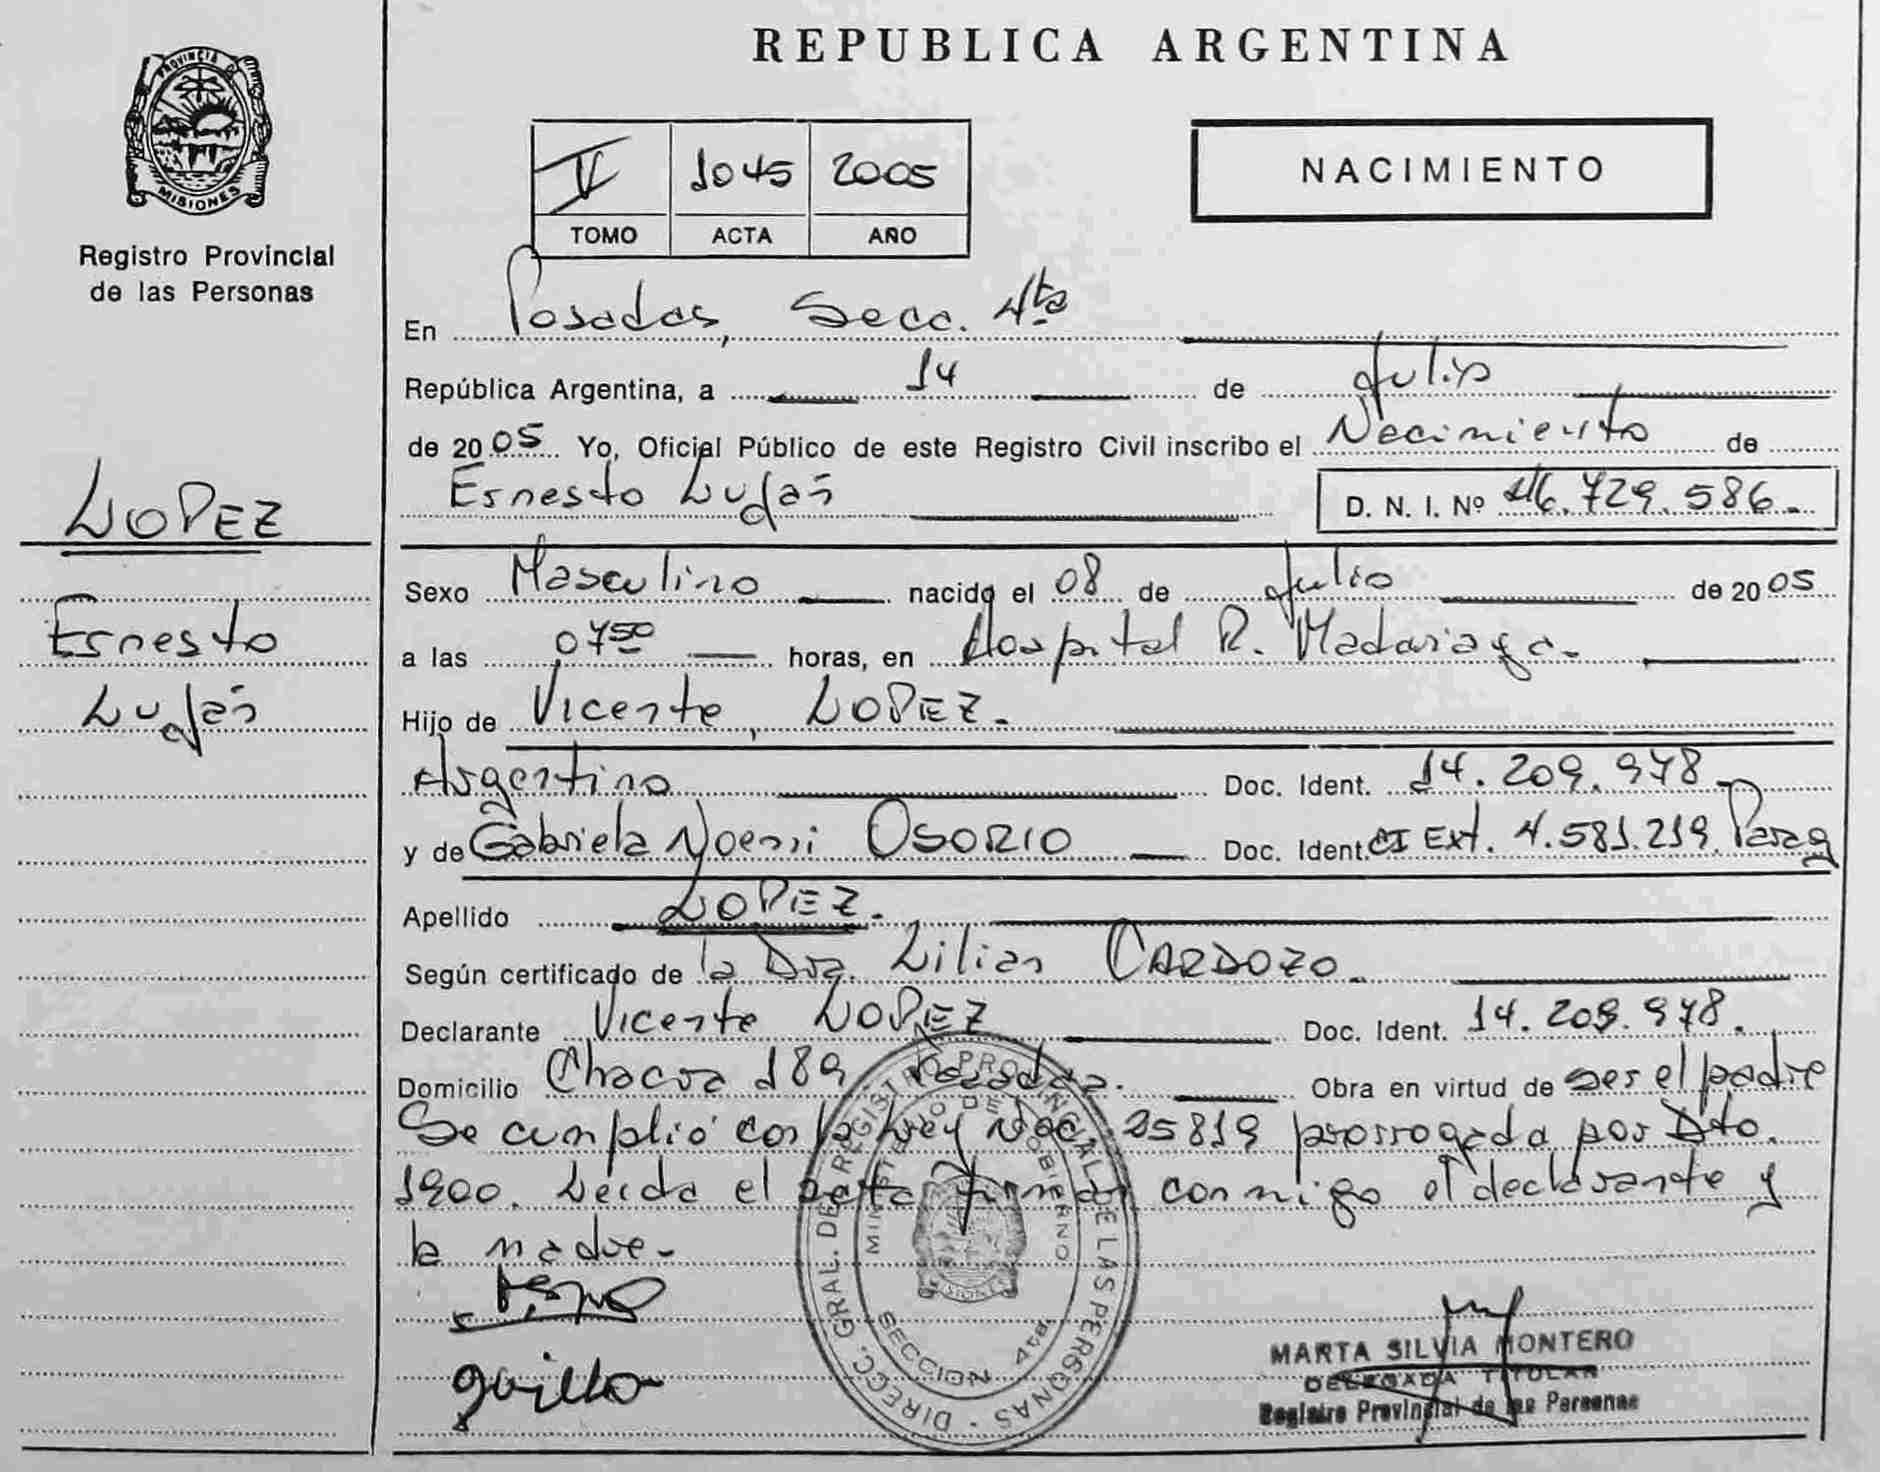 REPUBLICA ARGENTINA
PROVINCIA DE
MISIONES
Registro Provincial
de las Personas
V 1045 2005
TOMO ACTA AÑO
NACIMIENTO
LOPEZ
Ernesto
Luján
En Posadas, Secc. 4ta
República Argentina, a 14 de Julio
de 2005 Yo, Oficial Público de este Registro Civil inscribo el Nacimiento de
Ernesto Luján D. N. I. Nº 46.729.586.
Sexo Masculino nacido el 08 de Julio de 2005
a las 0750 horas, en Hospital R. Madariaga.
Hijo de Vicente, LOPEZ.
Argentino Doc. Ident. 14.209.978
y de Gabriela Noemi OSORIO Doc. Ident. CI Ext. 4.581.219. Parag
Apellido LOPEZ.
Según certificado de la Dra. Lilian CARDOZO.
Declarante Vicente LOPEZ Doc. Ident. 14.209.978.
Domicilio Chacra 189 Posadas. Obra en virtud de ser el padre
Se cumplió con la Ley Nac. 25819 prorrogada por Dto.
1900. Leida el acta firman conmigo el declarante y
la madre.
DIRECC. GRAL. DE REGISTRO PROVINCIAL DE LAS PERSONAS
MINISTERIO DE GOBIERNO
SECCION 4ta
MARTA SILVIA MONTERO
DELEGADA TITULAR
Registro Provincial de las Personas